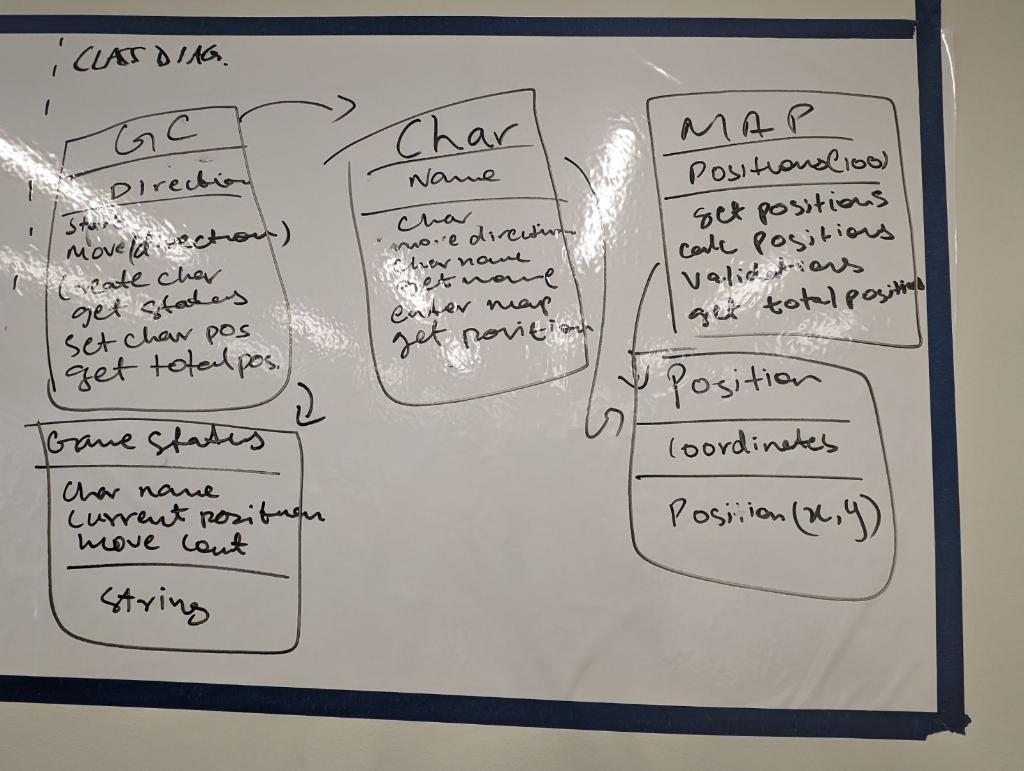 CLASS DIAG.
GC
Direction
Start
Move(direction)
Create char
get status
set char pos
get total pos.
Char
Name
Char
move direction
char name
get name
enter map
get position
MAP
Positions(100)
get positions
calc positions
validations
get total positions
Game Status
Char name
Current position
move cout
String
Position
Coordinates
Position(x,y)